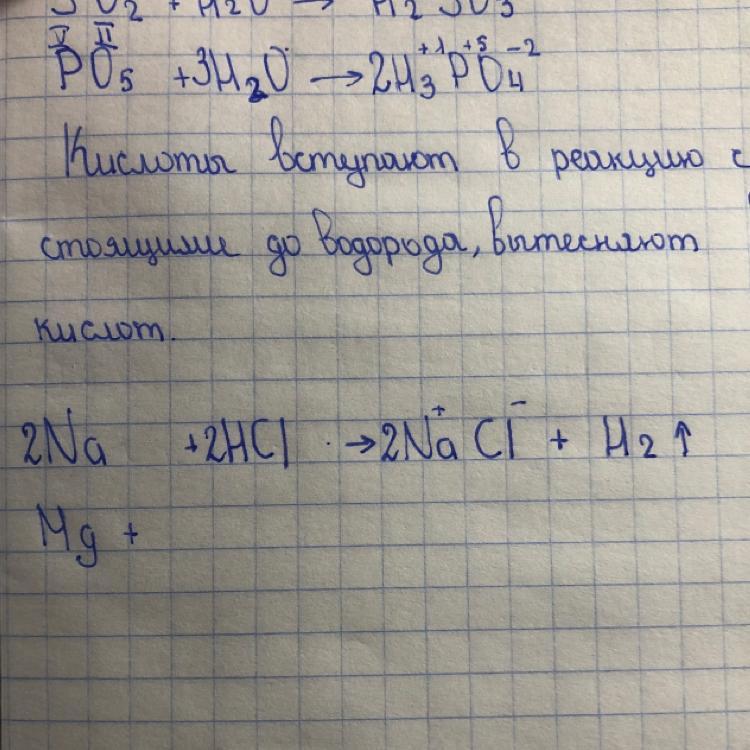 SO₂ + H₂O → H₂SO₃
V II
PO₅ + 3H₂O → 2H₃⁺¹P⁺⁵O₄⁻²
Кислоты вступают в реакцию с
стоящими до водорода, вытесняют
кислот.
2Na + 2HCl → 2Na⁺Cl⁻ + H₂↑
Mg +